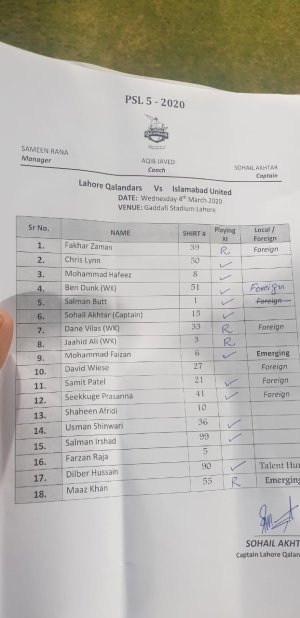 PSL 5 - 2020
QALANDARS
SAMEEN RANA AQIB JAVED SOHAIL AKHTAR
Manager Coach Captain
Lahore Qalandars Vs Islamabad United
DATE: Wednesday 4th March 2020
VENUE: Gaddafi Stadium Lahore
Sr No. NAME SHIRT # Playing XI Local / Foreign
1. Fakhar Zaman 39 R Foreign
2. Chris Lynn 50 ✓
3. Mohammad Hafeez 8 ✓
4. Ben Dunk (WK) 51 ✓ Foreign
5. Salman Butt 1 ✓ Foreign
6. Sohail Akhtar (Captain) 15 ✓
7. Dane Vilas (WK) 33 R Foreign
8. Jaahid Ali (WK) 3 R
9. Mohammad Faizan 6 ✓ Emerging
10. David Wiese 27 Foreign
11. Samit Patel 21 ✓ Foreign
12. Seekkuge Prasanna 41 ✓ Foreign
13. Shaheen Afridi 10
14. Usman Shinwari 36 ✓
15. Salman Irshad 99 ✓
16. Farzan Raja 5
17. Dilber Hussain 90 ✓ Talent Hun
18. Maaz Khan 55 R Emerging
SOHAIL AKHT
Captain Lahore Qalan